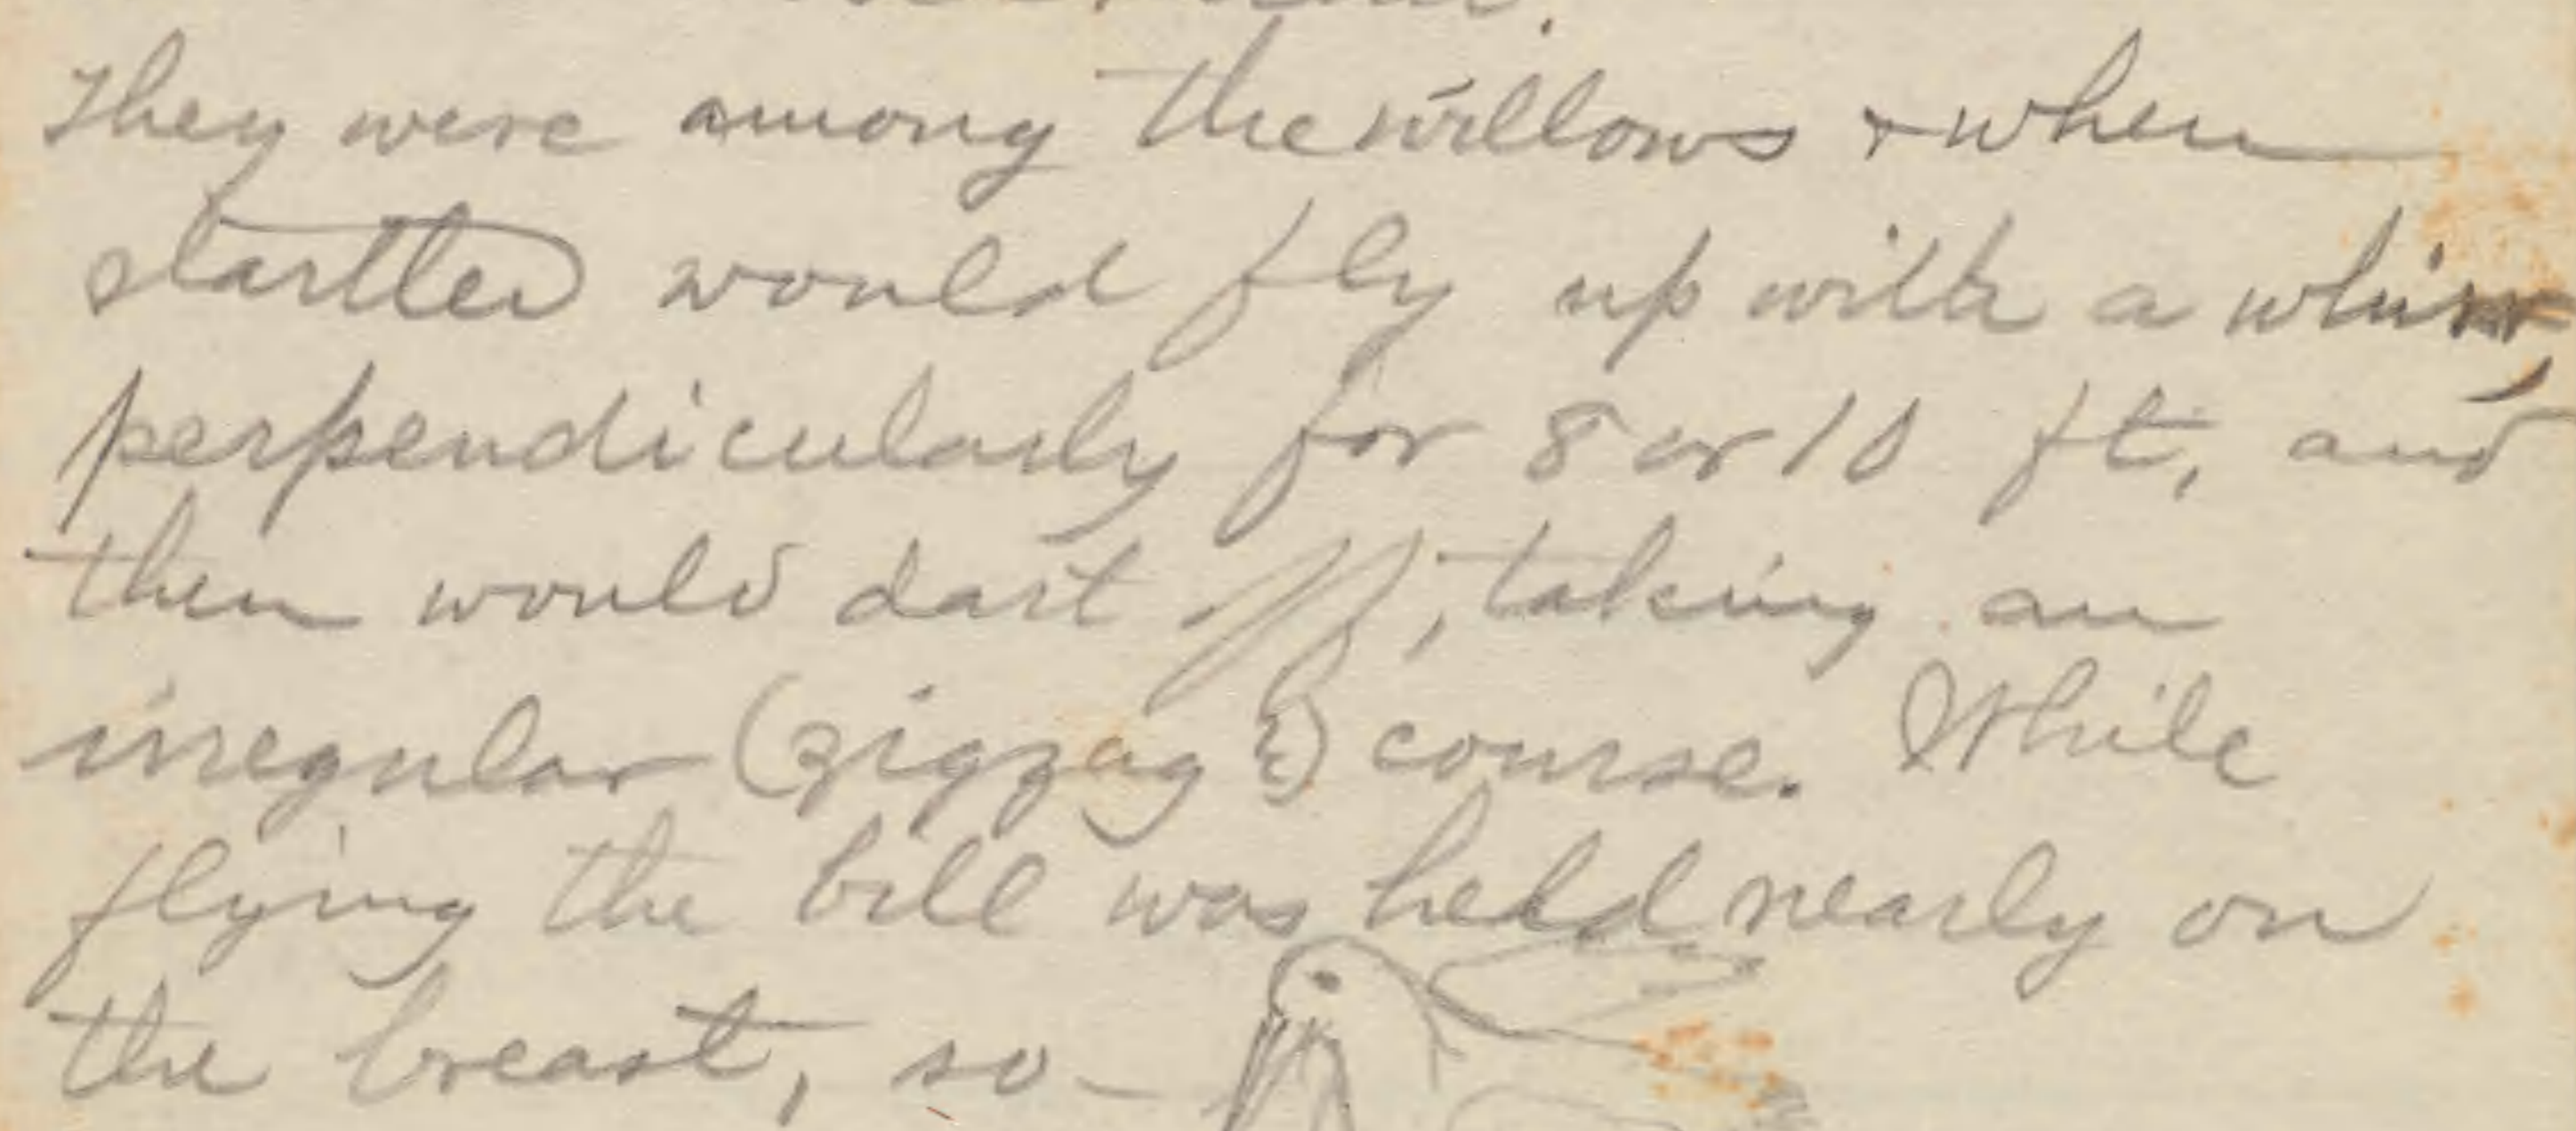 They were among the willows & when
startled would fly up with a whirr,
perpendicularly for 8 or 10 ft, and
then would dart off, taking an
irregular (zigzag ξ) course. While
flying the bill was held nearly on
the breast, so-